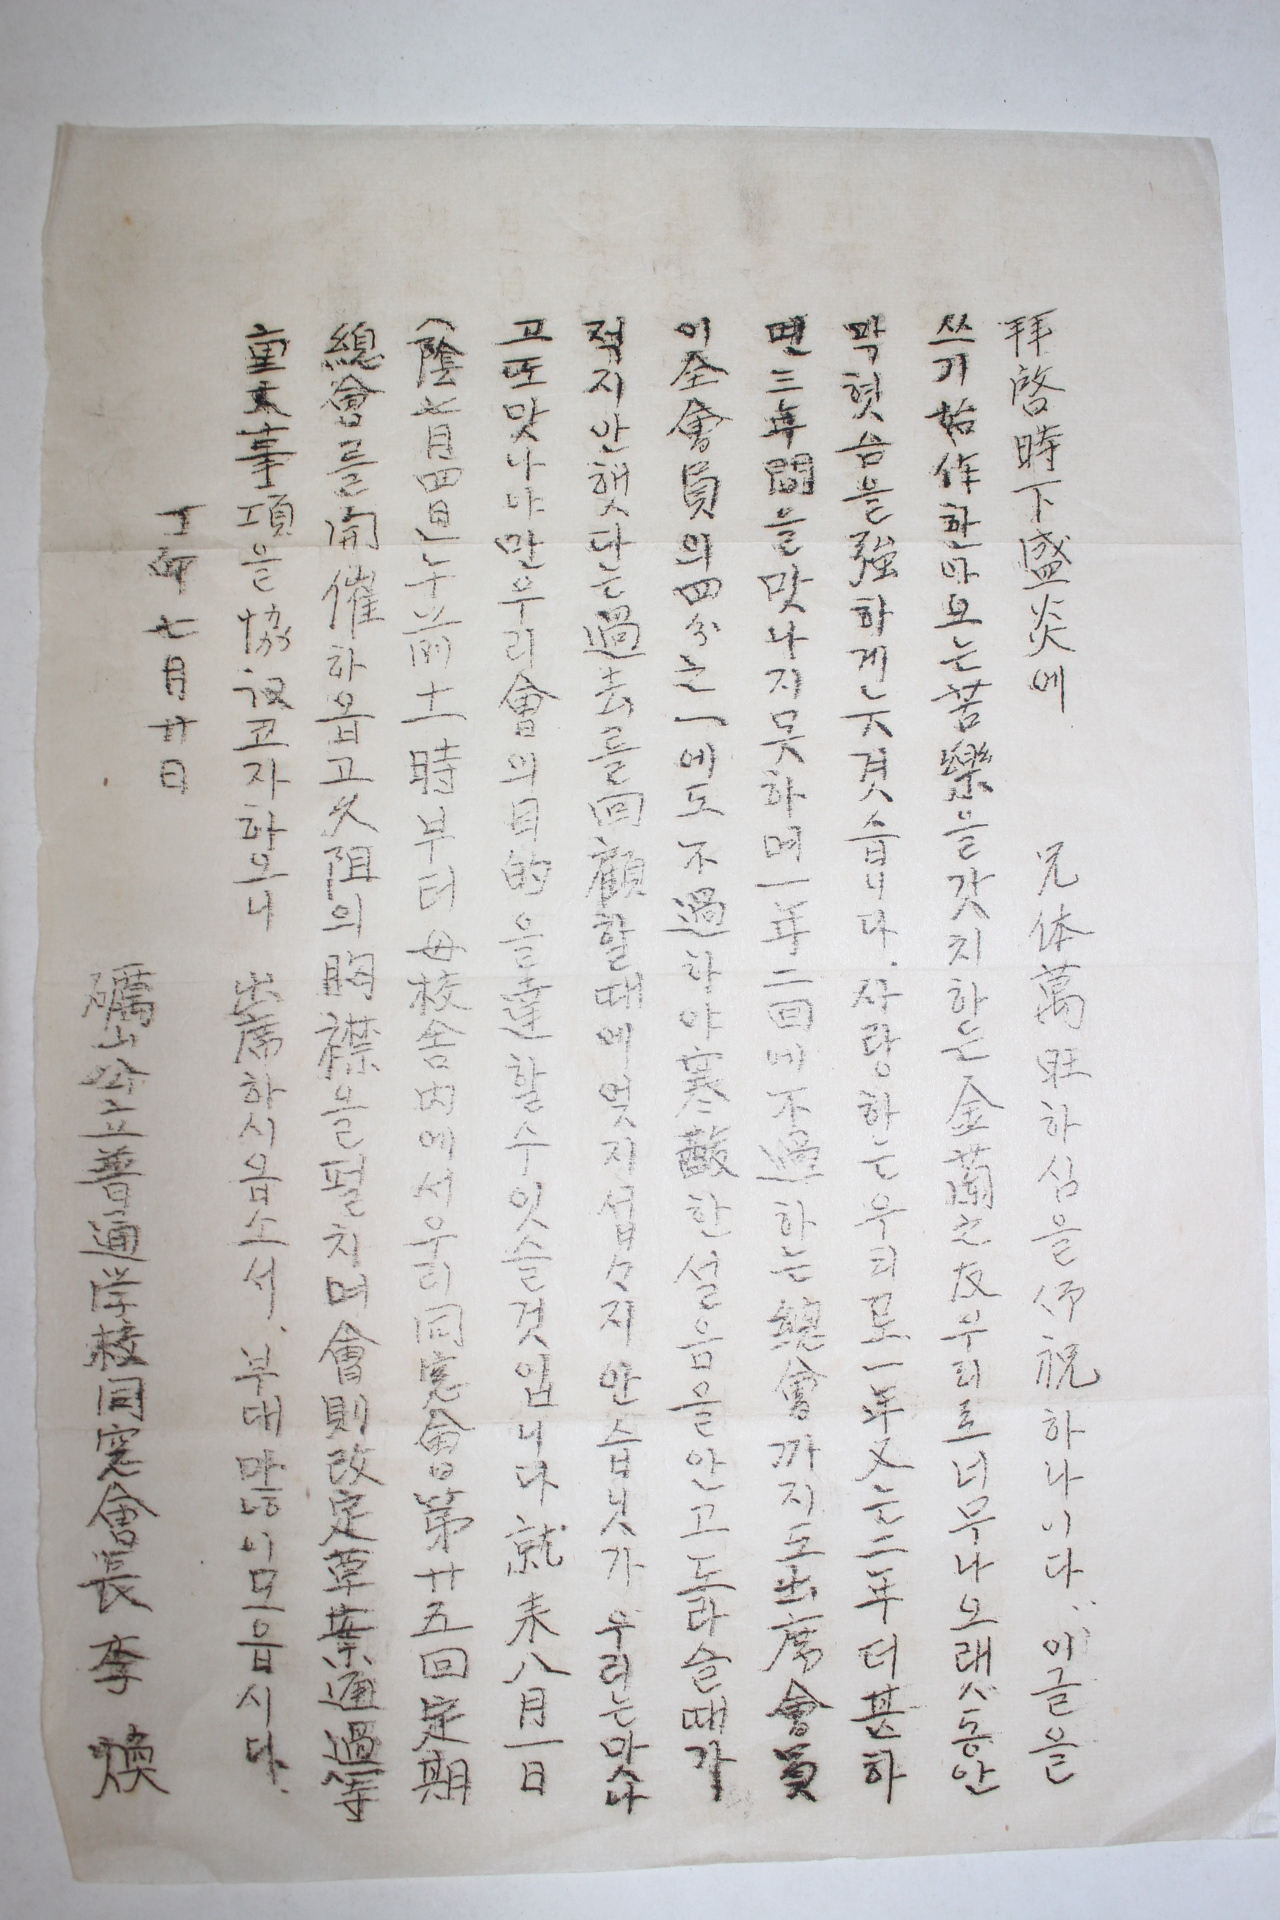 拜啓時下盛炎에 兄体萬旺하심을仰祝하나이다. 이글을
쓰기始作한마요는苦樂을갓치하은金蘭之友우리로너무나오랫동안
막혓슴을强하게늣겻슴니다. 사랑하는우리로一年又는二年더甚하
면三年間을맛나지못하며一年二回에不過하는總會까지도出席會員
이全會員의四分之一에도不過하야寒酸한설음을안고도라슬때가
적지안햇다는過去를回顧할때에엇지섭々지안슴닛가 우리는맛나
고또맛나야만우리會의目的을達할수잇슬것임니다 就来八月一日
(陰七月四日)午前十一時부터母校舍内에서우리同窓會第廿五回定期
總會를開催하옵고久阻의胸襟을펼치며會則改定草案通過等
重大事項을協议코자하오니 出席하시옵소서. 부대만히모읍시다.
丁卯七月廿日
礪山公立普通学校同窓會長 李 煥